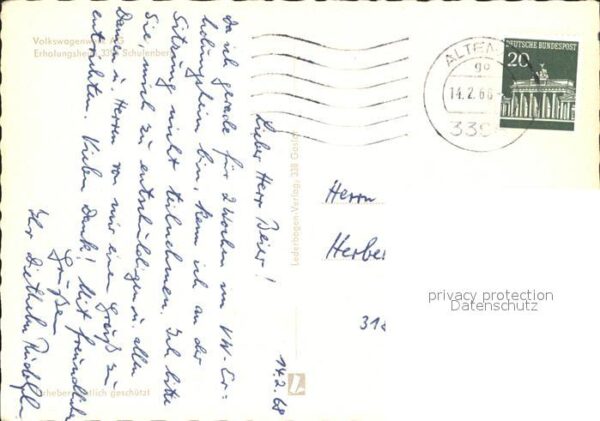 Volkswagenwerk AG
Erholungsheim 3391 Schulenberg
14.2.68
Lieber Herr Beier!
Da ich gerade für 2 Wochen im VW-Er-
holungsheim bin, kann ich an der
Sitzung nicht teilnehmen. Ich bitte
Sie, mich zu entschuldigen u. allen
Damen u. Herren von mir einen Gruß zu
entrichten. Vielen Dank! Mit freundlichen
Grüßen
Ihr Diethelm
Urheberrechtlich geschützt
Lederbogen-Verlag, 338 Goslar
ALTEN
14.2.68
339
DEUTSCHE BUNDESPOST
20
Herrn
Herber
318
privacy protection
Datenschutz